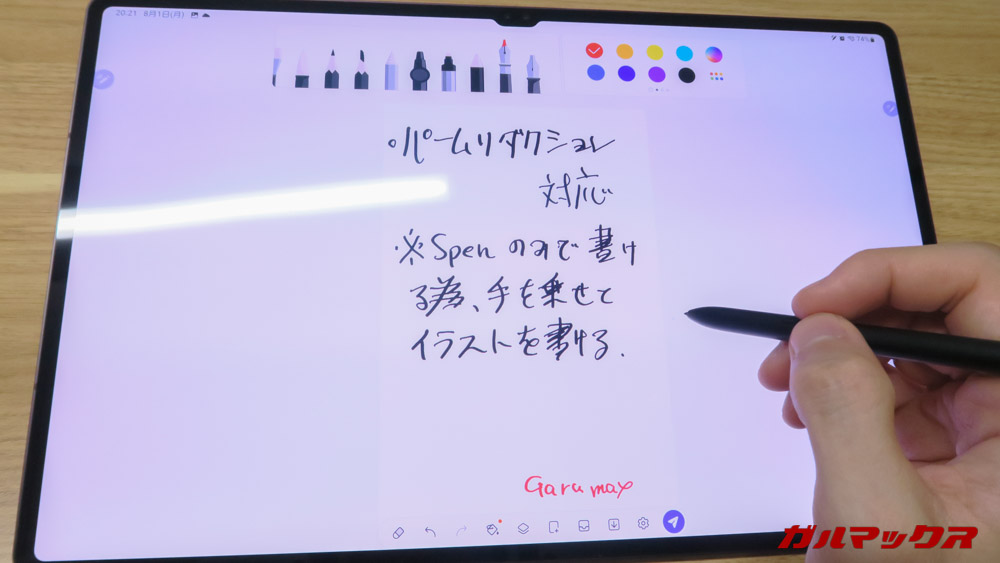 20:21 8月1日(月)
74%
・パームリダクション
対応
※Spenのみで書け
る為、手を乗せて
イラストを書ける.
Garumax
ガルマックス